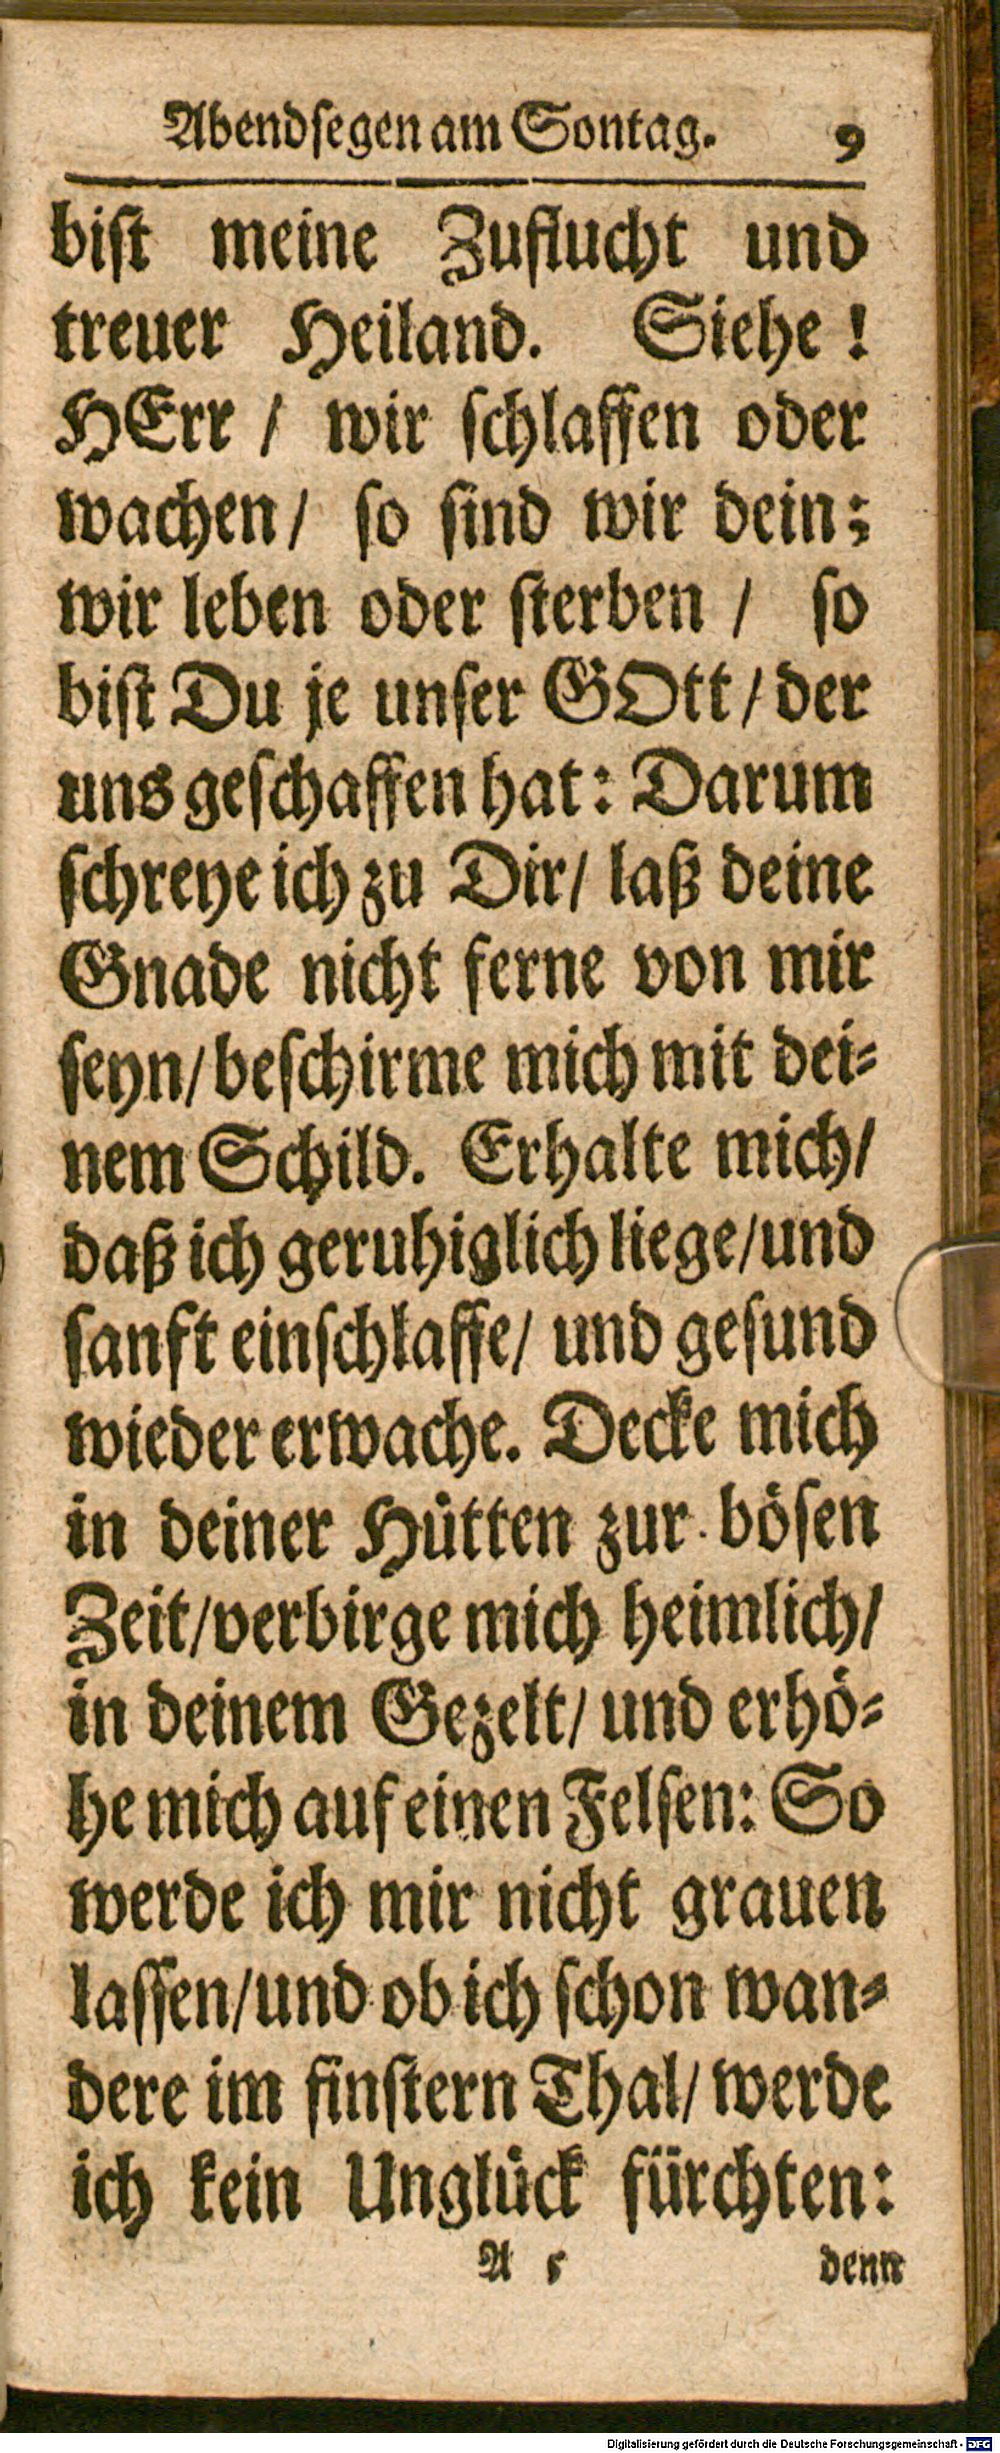 Abendsegen am Sontag. 9
bist meine Zuflucht und
treuer Heiland. Siehe!
HErr / wir schlaffen oder
wachen / so sind wir dein;
wir leben oder sterben / so
bist Du je unser GOtt / der
uns geschaffen hat: Darum
schreye ich zu Dir / laß deine
Gnade nicht ferne von mir
seyn / beschirme mich mit dei-
nem Schild. Erhalte mich /
daß ich geruhiglich liege / und
sanft einschlaffe / und gesund
wieder erwache. Decke mich
in deiner Hütten zur bösen
Zeit / verbirge mich heimlich /
in deinem Gezelt / und erhö-
he mich auf einen Felsen: So
werde ich mir nicht grauen
lassen / und ob ich schon wan-
dere im finstern Thal / werde
ich kein Unglück fürchten:
A 5 denn
Digitalisierung gefördert durch die Deutsche Forschungsgemeinschaft - DFG